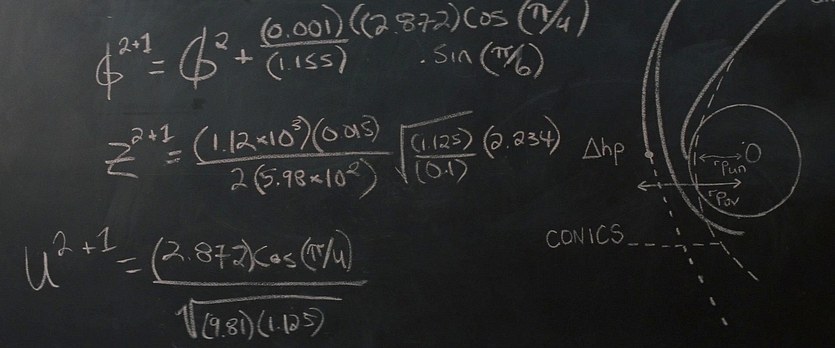 ϕ²⁺¹ = ϕ² + (0.001)((2.872)Cos(π/4) / (1.155) · Sin(π/6)
Z²⁺¹ = (1.12×10³)(0.015) / 2(5.98×10²) √((1.125) / (0.1)) (2.234)
U²⁺¹ = (2.872)Cos(π/4) / √(9.81)(1.125)
Δhp
O
rpun
rpav
CONICS